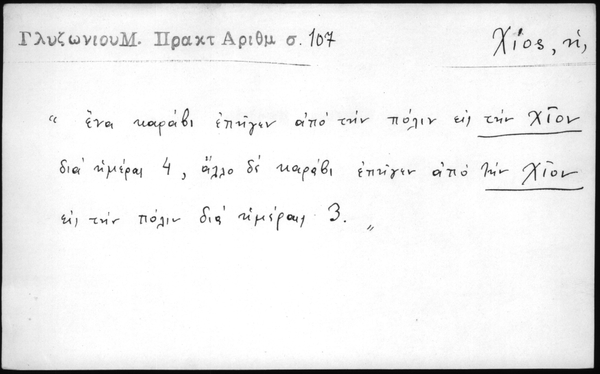 ΓλυζωνιουΜ. Πρακτ Αριθμ σ. 107
Χίος, ἡ,
“ ἕνα καράβι ἐπῆγεν ἀπό τήν πόλιν εἰς τήν Χῖον
διά ἡμέραι 4, ἄλλο δέ καράβι ἐπῆγεν ἀπό τήν Χῖον
εἰς τήν πόλιν διά ἡμέραις 3. „